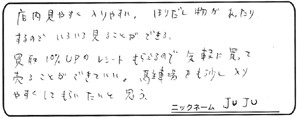 店内見やすく入りやすい。ほりだし物があったり
するのでいろいろ見ることができる。
買取10%UPのレシートもらえるので気軽に買って
売ることができていい。駐車場がもう少し入り
やすくしてもらいたいと思う。
ニックネーム JUJU